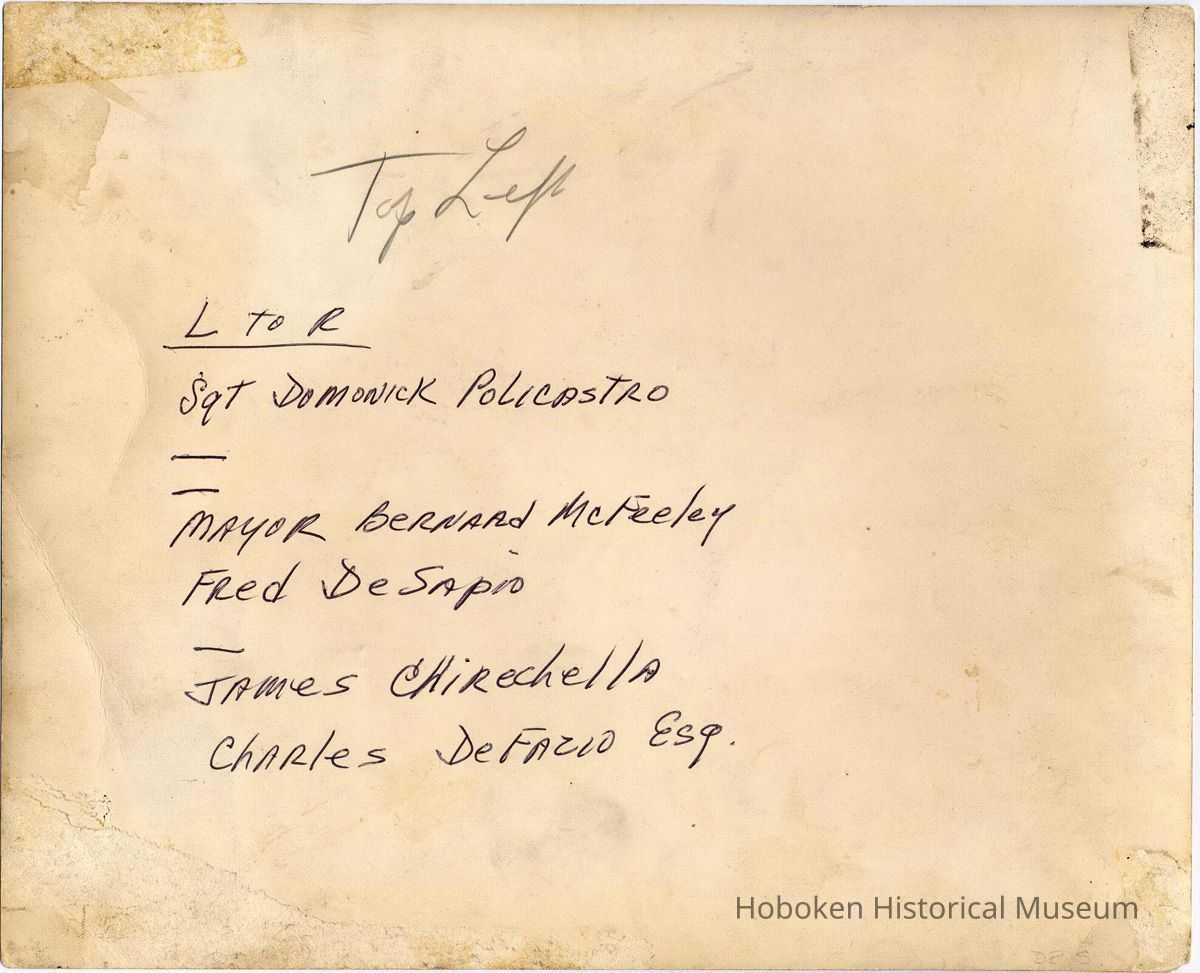 Top Left
L to R
Sgt Domonick Policastro
—
—
Mayor Bernard McFeeley
Fred DeSapio
—
James Chirechella
Charles DeFazio Esq.
Hoboken Historical Museum